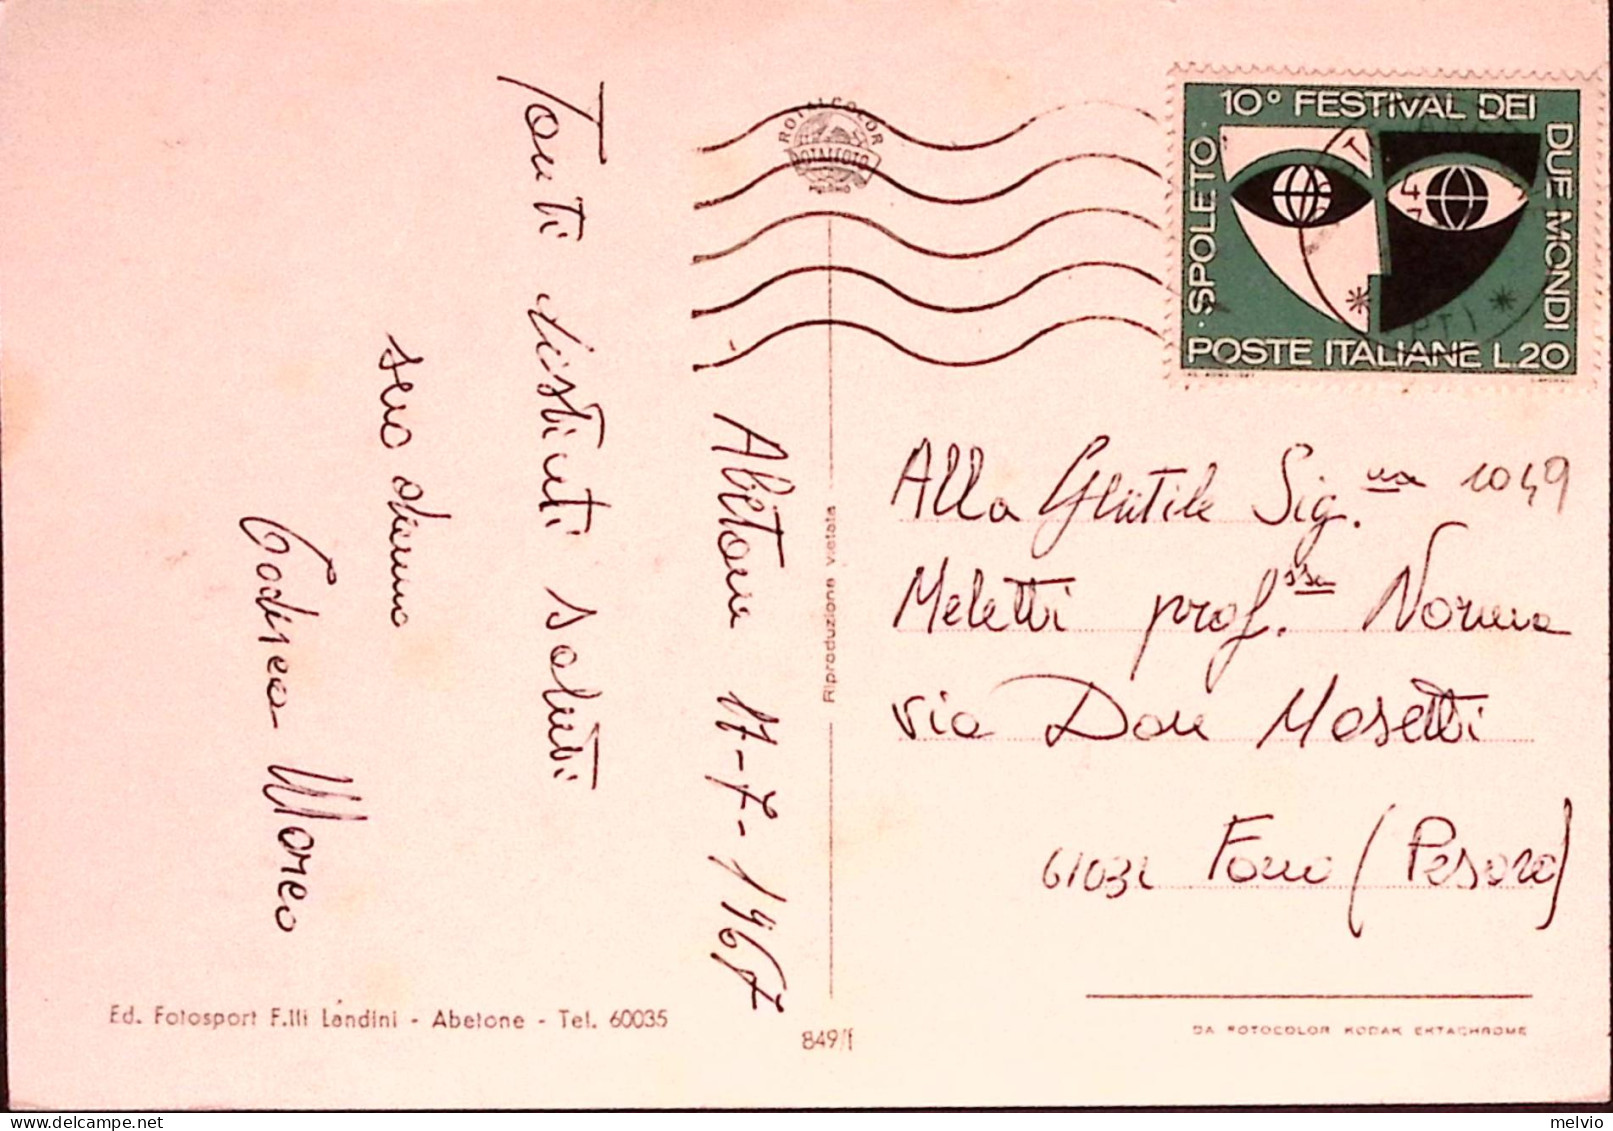 Abetone 11-7-1967
Tanti distinti saluti
suo alunno
Marco
Alla Gentile Sig.na 1049
Meletti prof.ssa Norma
via Don Mosetti
61032 Fano (Pesaro)
10° FESTIVAL DEI
DUE MONDI
· SPOLETO
POSTE ITALIANE L.20
ROTALCOLOR
ROTALFOTO
Riproduzione vietata
Ed. Fotosport F.lli Landini - Abetone - Tel. 60035
849/f
DA FOTOCOLOR KODAK EKTACHROME
melvio